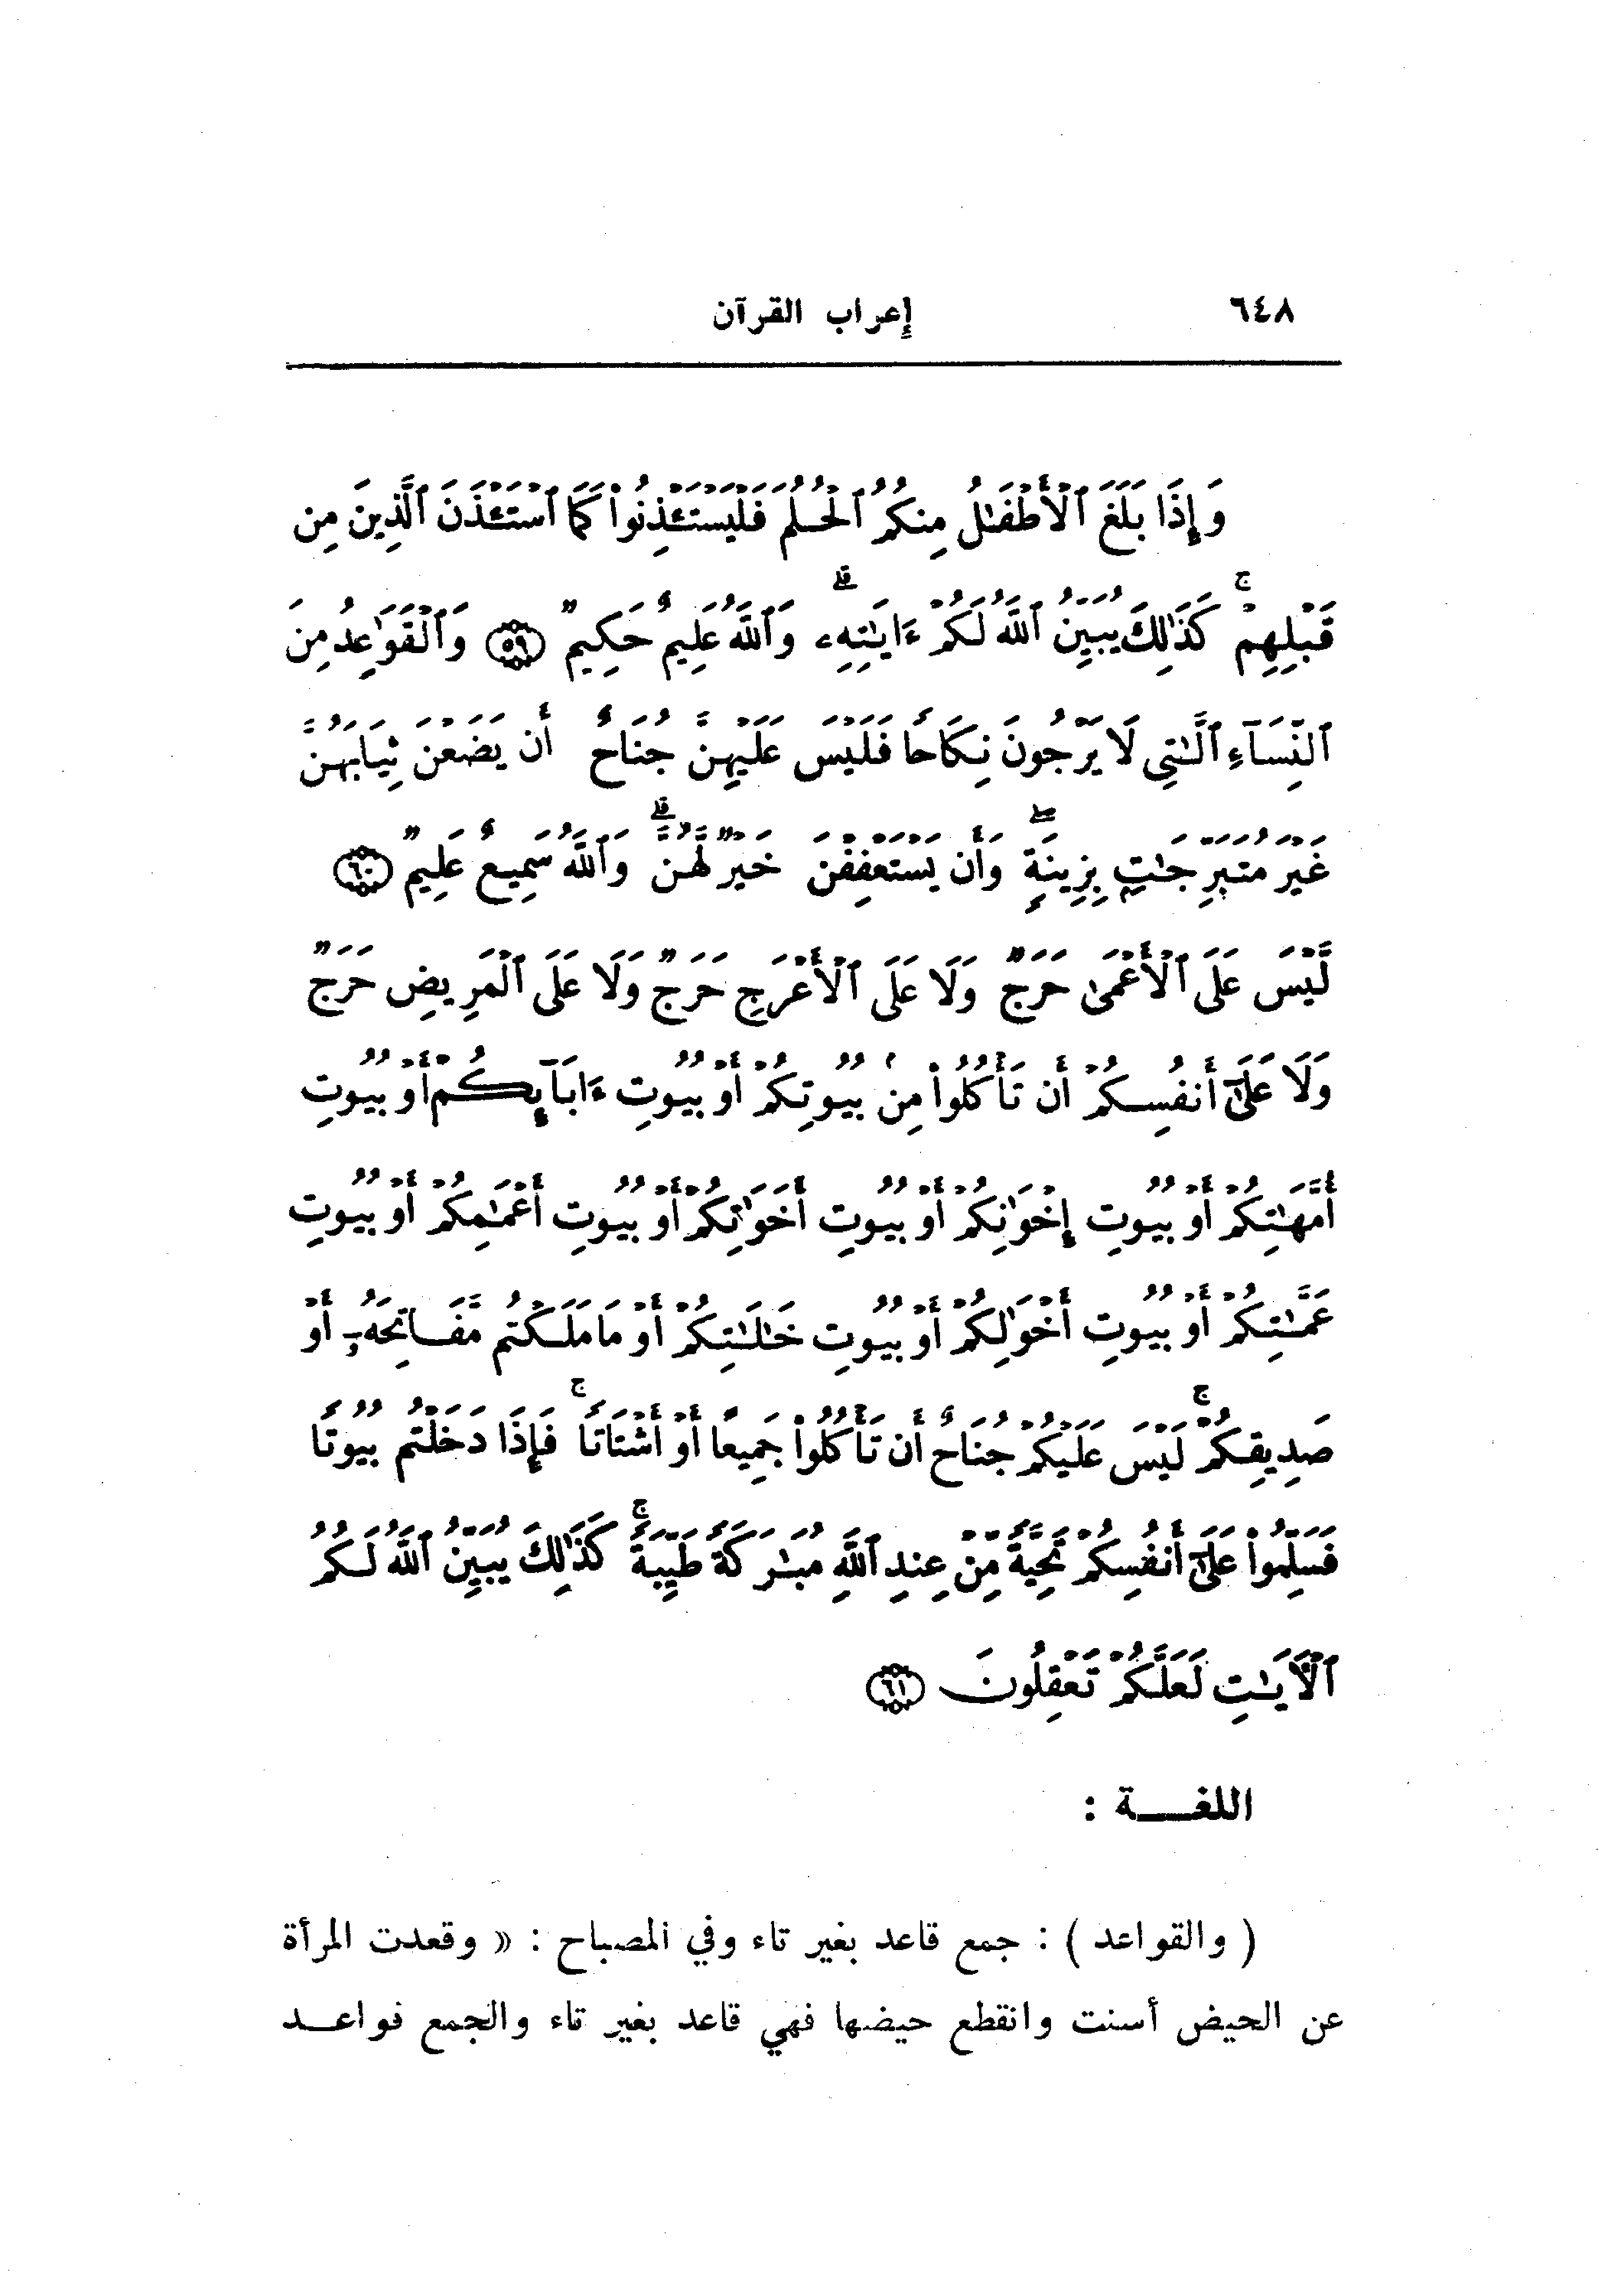 ٦٤٨ إعراب القرآن
وَإِذَا بَلَغَ ٱلْأَطْفَٰلُ مِنكُمُ ٱلْحُلُمَ فَلْيَسْتَـْٔذِنُوا۟ كَمَا ٱسْتَـْٔذَنَ ٱلَّذِينَ مِن
قَبْلِهِمْ ۚ كَذَٰلِكَ يُبَيِّنُ ٱللَّهُ لَكُمْ ءَايَٰتِهِۦ ۗ وَٱللَّهُ عَلِيمٌ حَكِيمٌ ٥٩ وَٱلْقَوَٰعِدُ مِنَ
ٱلنِّسَآءِ ٱلَّٰتِى لَا يَرْجُونَ نِكَاحًا فَلَيْسَ عَلَيْهِنَّ جُنَاحٌ أَن يَضَعْنَ ثِيَابَهُنَّ
غَيْرَ مُتَبَرِّجَٰتٍۭ بِزِينَةٍ ۖ وَأَن يَسْتَعْفِفْنَ خَيْرٌ لَّهُنَّ ۗ وَٱللَّهُ سَمِيعٌ عَلِيمٌ ٦٠
لَّيْسَ عَلَى ٱلْأَعْمَىٰ حَرَجٌ وَلَا عَلَى ٱلْأَعْرَجِ حَرَجٌ وَلَا عَلَى ٱلْمَرِيضِ حَرَجٌ
وَلَا عَلَىٰٓ أَنفُسِكُمْ أَن تَأْكُلُوا۟ مِنۢ بُيُوتِكُمْ أَوْ بُيُوتِ ءَابَآئِكُمْ أَوْ بُيُوتِ
أُمَّهَٰتِكُمْ أَوْ بُيُوتِ إِخْوَٰنِكُمْ أَوْ بُيُوتِ أَخَوَٰتِكُمْ أَوْ بُيُوتِ أَعْمَٰمِكُمْ أَوْ بُيُوتِ
عَمَّٰتِكُمْ أَوْ بُيُوتِ أَخْوَٰلِكُمْ أَوْ بُيُوتِ خَٰلَٰتِكُمْ أَوْ مَا مَلَكْتُم مَّفَاتِحَهُۥٓ أَوْ
صَدِيقِكُمْ ۚ لَيْسَ عَلَيْكُمْ جُنَاحٌ أَن تَأْكُلُوا۟ جَمِيعًا أَوْ أَشْتَاتًا ۚ فَإِذَا دَخَلْتُم بُيُوتًا
فَسَلِّمُوا۟ عَلَىٰٓ أَنفُسِكُمْ تَحِيَّةً مِّنْ عِندِ ٱللَّهِ مُبَٰرَكَةً طَيِّبَةً ۚ كَذَٰلِكَ يُبَيِّنُ ٱللَّهُ لَكُمُ
ٱلْـَٔايَٰتِ لَعَلَّكُمْ تَعْقِلُونَ ٦١
اللغـــة :
( والقواعد ) : جمع قاعد بغير تاء وفي المصباح : « وقعدت المرأة
عن الحيض أسنت وانقطع حيضها فهي قاعد بغير تاء والجمع قواعــد